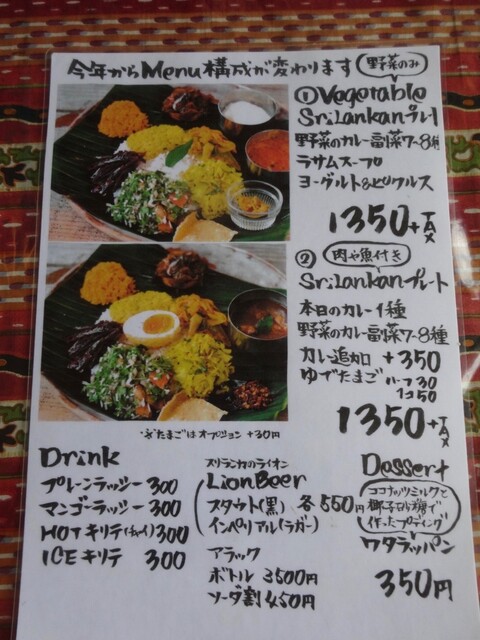 今年からMenu構成が変わります
野菜のみ
①Vegetable
SriLankanプレート
野菜のカレー副菜7~8種
ラサムスープ
ヨーグルト&ピクルス
1350+TAX
②肉や魚付き
SriLankanプレート
本日のカレー1種
野菜のカレー副菜7~8種
カレー追加 +350
ゆでたまご ハーフ30
1コ50
1350+TAX
たまごはオプション +30円
Drink
プレーンラッシー 300
マンゴーラッシー 300
HOTキリテ(チャイ)300
ICEキリテ 300
スリランカのライオン
LionBeer
スタウト(黒) 各550円
インペリアル(ラガー)
アラック
ボトル 3500円
ソーダ割 450円
Dessert
ココナッツミルクと
椰子砂糖で
作ったプディング
ワタラッパン
350円